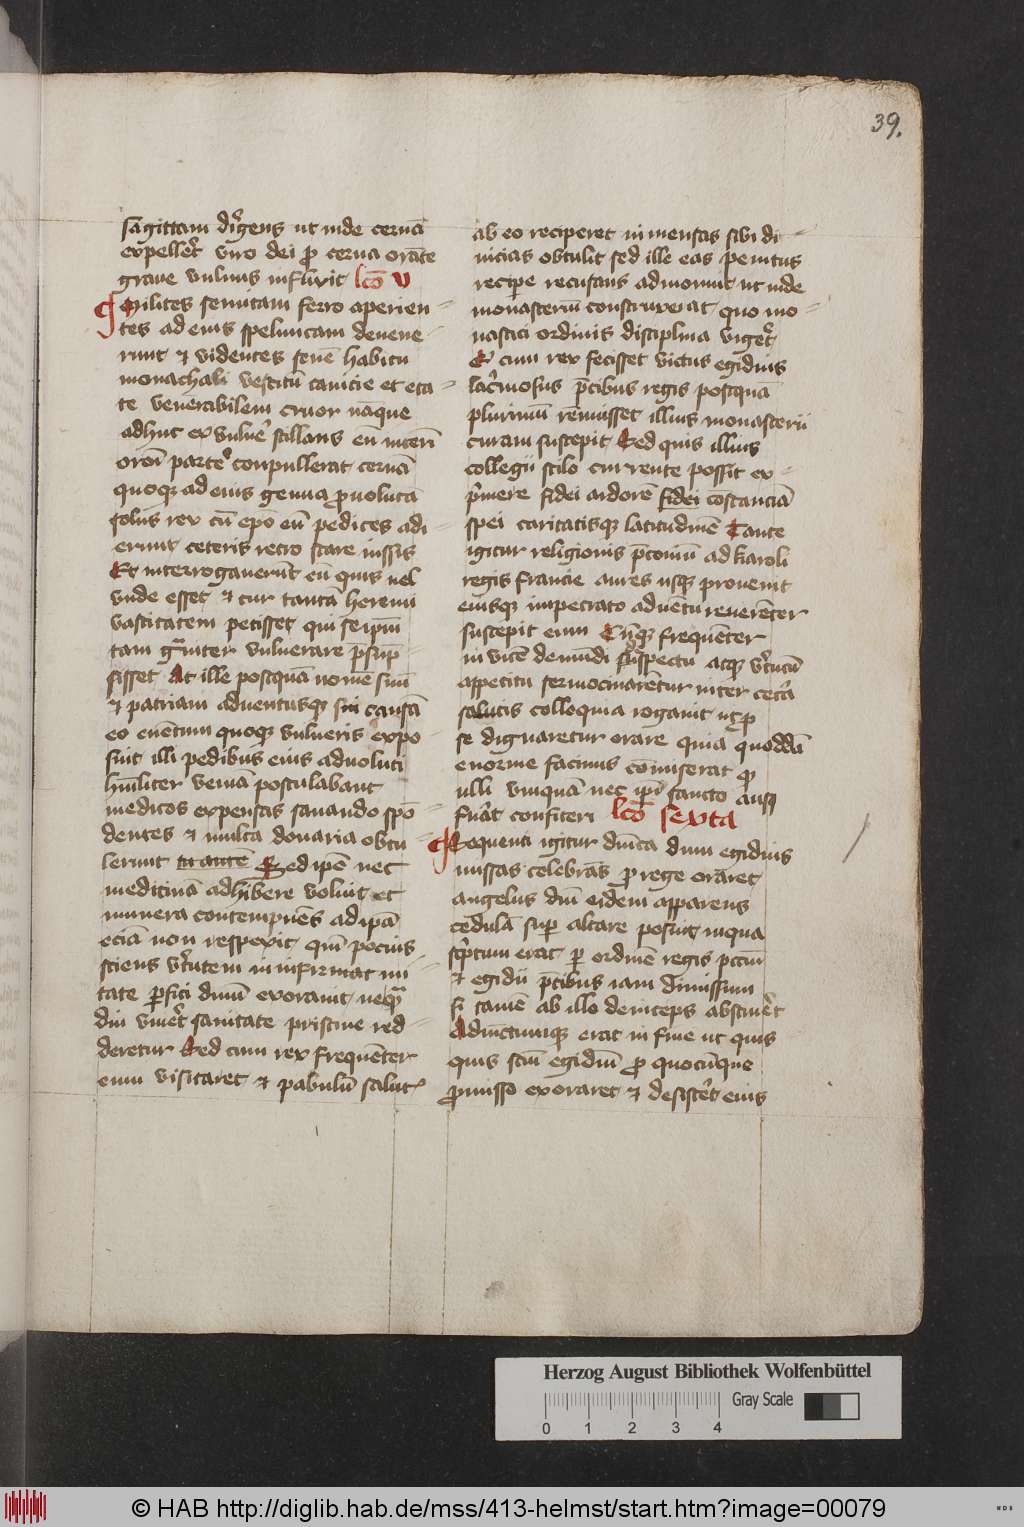 39.
sagittam dirigens ut inde cervā
expelleret viro dei ꝓ cerva orāte
grave vulnus inflixit lcō v
Milites semitam ferro aperien-
tes ad eius speluncam devene-
runt et videntes senē habitu
monachali vestitū canicie et eta-
te venerabilem cruor nāque
adhuc ex vulnere stillans
quoque ad eius genua ꝓvolutā
solus rex cū epō eū pedites adi-
erunt ceteris retro stare iussis
Et interrogaverūt eū quis vel
unde esset et cur tantā heremi
vastitatem petisset qui seipm̄
tam graviter vulnerare p̄sūp-
sisset At ille postquā nomē suū
et patriam adventusque sui causā
eo evētum quoque vulneris expo-
suit illi pedibus eius advoluti
humiliter veniā postulabant
medicos expensas sanando spō-
dentes et multa donaria obtu-
lerunt Sed ipē nec
medicinā adhibere voluit et
munera contempnēs ad ipā
eciā non respexit qui pocius
sciens virtutem in infirmitat im-
tate perfici dnm̄ exoravit neqꝫ
diu viveret sanitate pristine red-
deretur Sed cum rex frequēter
eum visitaret et pabulū salut
ab eo reciperet immensas sibi di-
vicias obtulit sed ille eas penitus
recipe recusans admonuit ut inde
monasteriū construxerat quo mo-
nastici ordinis disciplina vigeret
Et cum rex fecisset victus egidius
lacrimosus p̄cibus regis postquā
plurimū renuisset illius monasterii
curam suscepit Sed quis illius
collegii stilo currente possit ex-
primere fidei ardorē fidei costanciā
spei caritatisque latitudinē Tante
igitur religionis p̄coniū ad karoli
regis francie aures usque provenit
eiusque impetrato adventu reverēter
suscepit eum Cūque frequēter
in vicē de mūdi despectu atque virtutū
appetitu sermocinarētur inter cetera
salutis colloquia rogavit ut ꝓ
se dignaretur orare quia quoddā
enorme facinus cōmiserat quod
ulli unquā nec ipi sancto ausus
fuerat confiteri lcō sexta
Sequenti igitur dn̄ica dum egidius
missas celebrās ꝓ rege oraret
angelus dn̄i eidem apparens
cedulā super altare posuit in qua
scriptum erat per ordinē regis pctm̄
et egidii p̄cibus iam dimissum
si tamē ab illo deinceps abstineret
Adiunctumque erat in fine ut quis
quis scm̄ egidiū ꝓ quocūque
ꝓmisso exoraret et desisteret eius
Herzog August Bibliothek Wolfenbüttel
Gray Scale
0 1 2 3 4
© HAB http://diglib.hab.de/mss/413-helmst/start.htm?image=00079